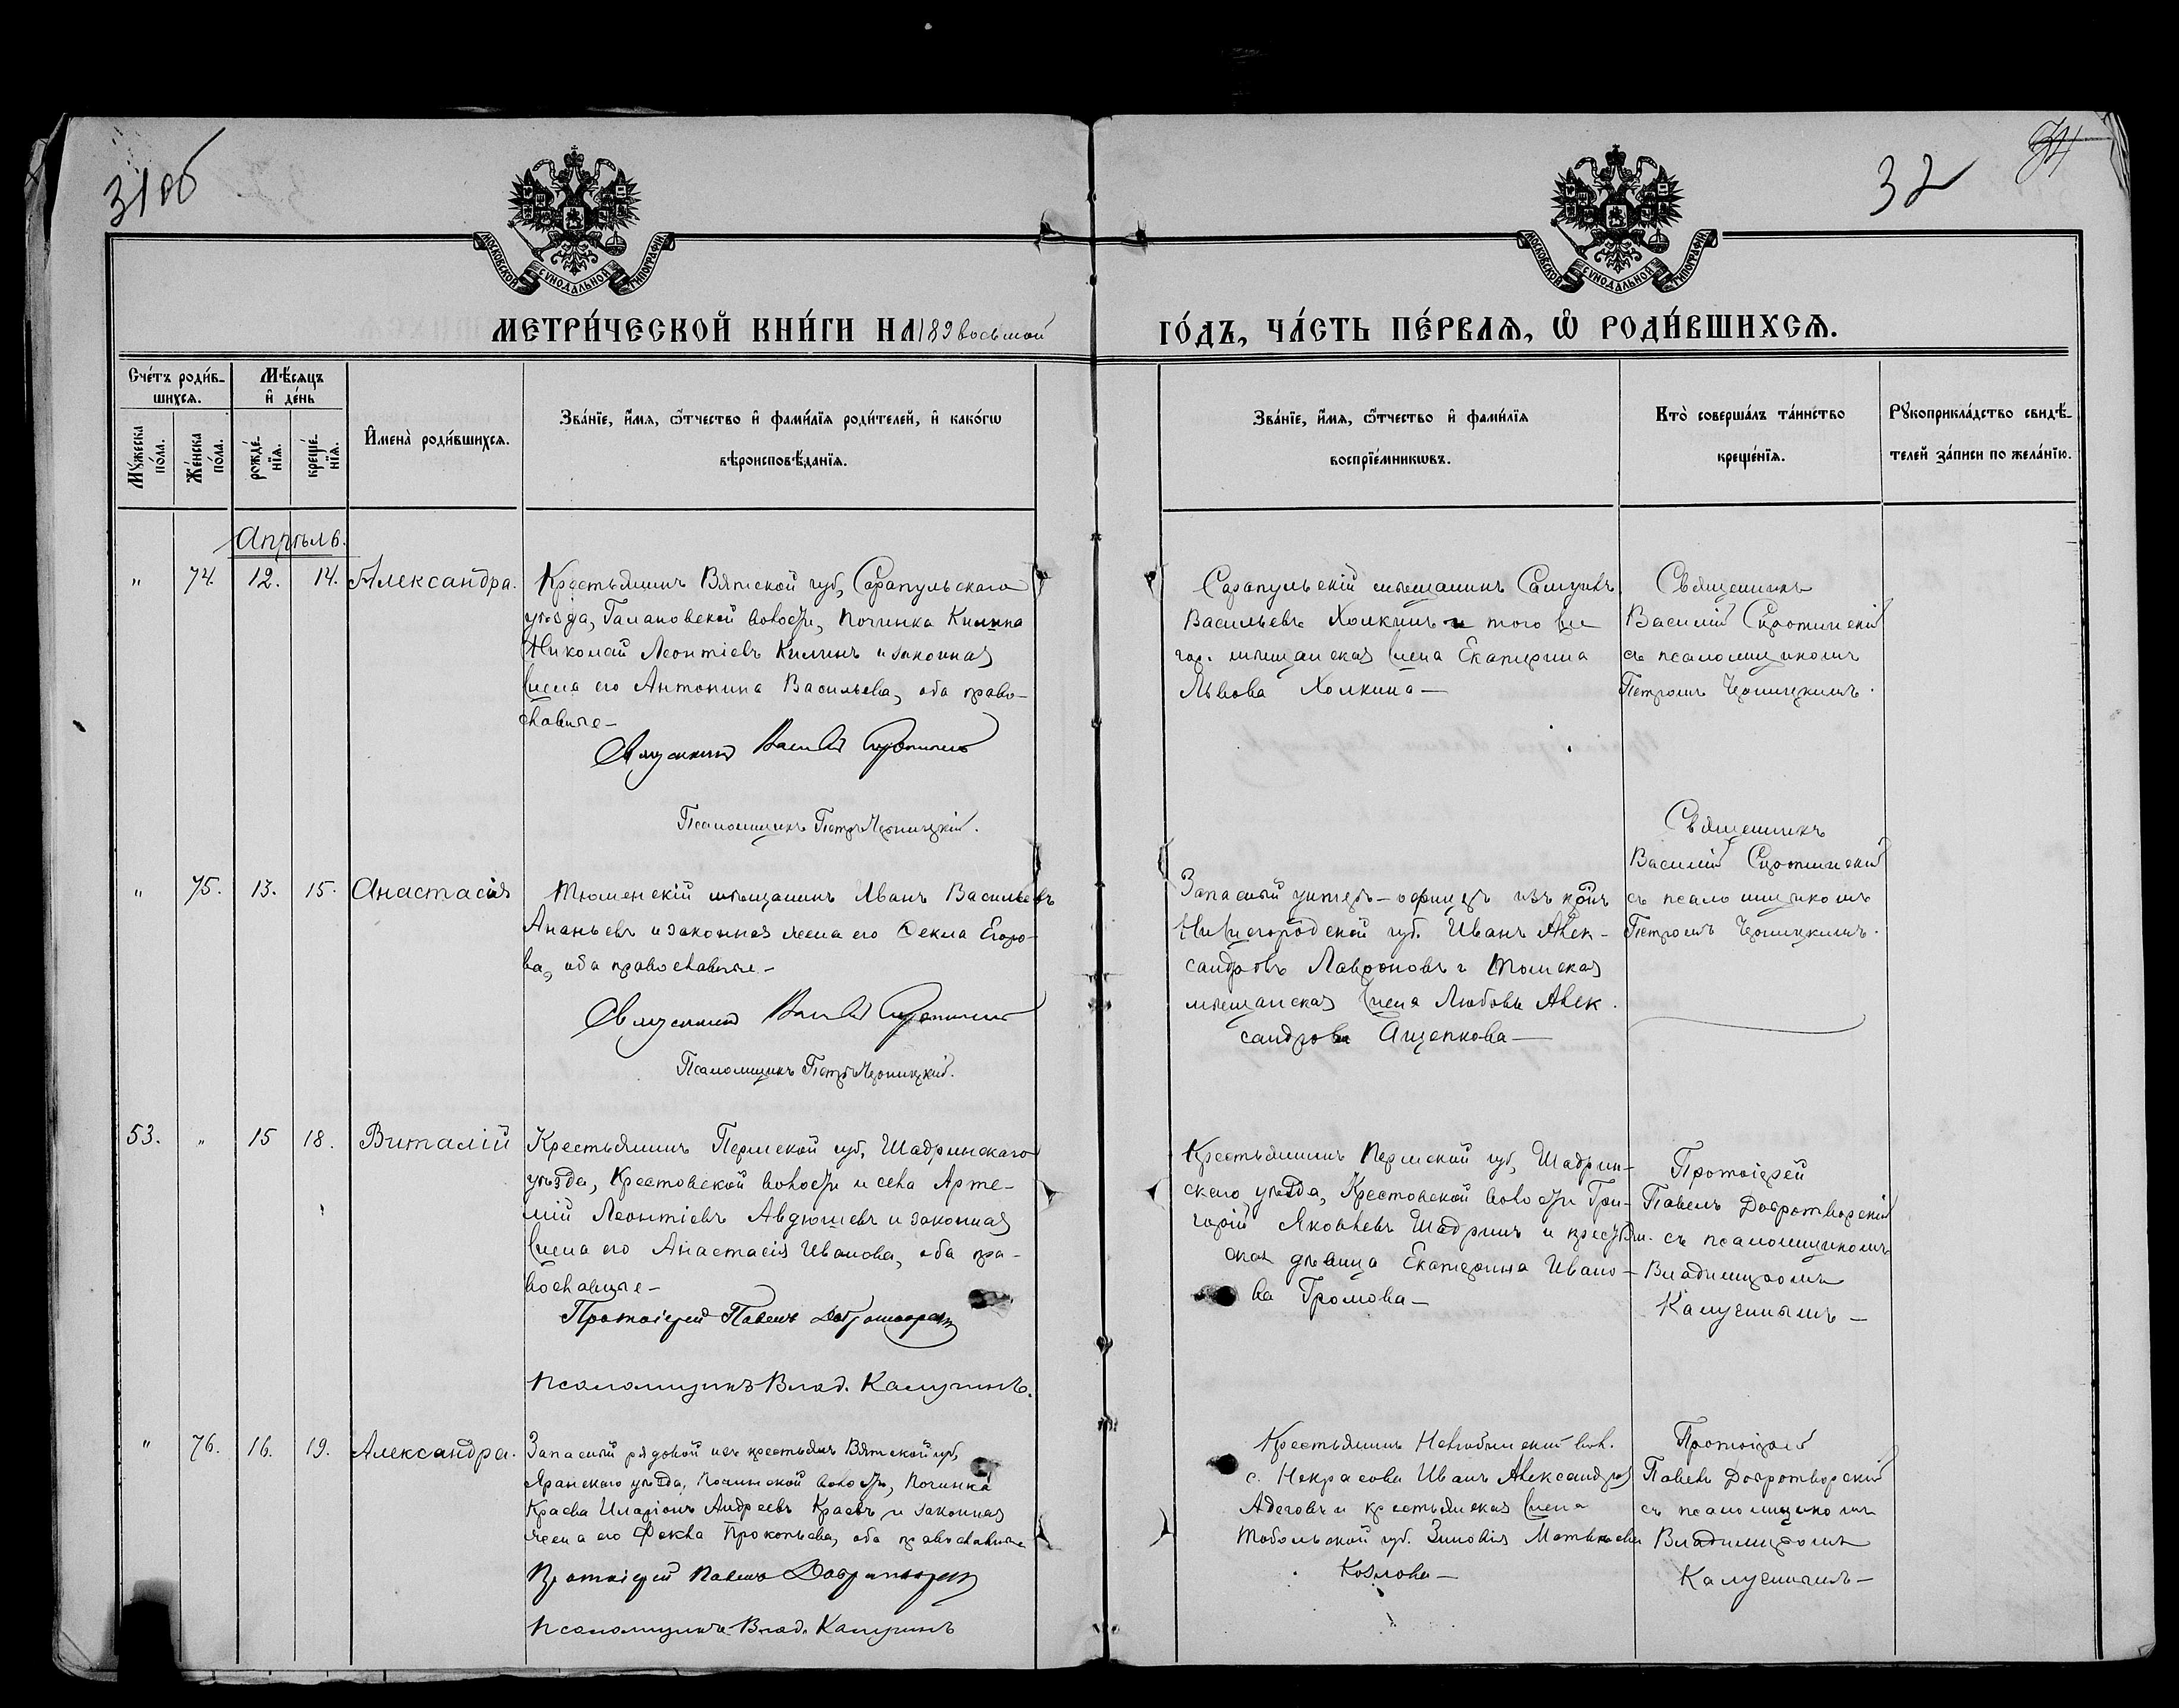 31 об
32
МОСКОВСКОЙ СУНОДАЛЬНОЙ ТИПОГРАФІИ
МОСКОВСКОЙ СУНОДАЛЬНОЙ ТИПОГРАФІИ
МЕТРИ́ЧЕСКОЙ КНИ́ГИ НА 189восьмой
ГО́ДЪ, ЧА́СТЬ ПЕ́РВАѦ, Ѽ РОДИ́ВШИХСѦ.
Сче́тъ роди́в-
шихсѧ.
Мѣ́сѧцъ
и҆ де́нь
Мꙋ́жеска по́ла.
Же́нска по́ла.
рожде́-
нїѧ.
креще́-
нїѧ.
И҆мена̀ роди́вшихсѧ.
Зва́нїе, и҆́мѧ, ѻ҆́тчество и҆ фами́лїѧ роди́телей, и҆ како́гѡ
вѣроисповѣ́данїѧ.
Зва́нїе, и҆́мѧ, ѻ҆́тчество и҆ фами́лїѧ
воспрїе́мникѡвъ.
Кто̀ соверша́лъ та́инство
креще́нїѧ.
Рꙋкоприкла́дство свидѣ́-
телей за́писи по жела́нїю.
Апрѣль.
" 74. 12. 14. Александра.
Крестьянинъ Вятской губ, Сарапульскаго
уѣзда, Галановской волости, починка Килина
Николай Леонтіевъ Килинъ и законная
жена его Антонина Васильева, оба право-
славные –
Священникъ Василій Сиротинскій
Псаломщикъ Петръ Черницкій.
Сарапульскій мѣщанинъ
Васильевъ Холкинъ и того же
гор. мѣщанская жена Екатерина
Львова Холкина –
Священникъ
Василій Сиротинскій
съ псаломщикомъ
Петромъ Черницкимъ.
" 75. 13. 15. Анастасія
Тюменскій мѣщанинъ Иванъ Васильевъ
Ананьевъ и законная жена его Фекла Егоро-
ва, оба православные. –
Священникъ Василій Сиротинскій
Псаломщикъ Петръ Черницкій.
Запасный унтеръ-офицеръ изъ
Нижегородской губ. Иванъ Алек-
сандровъ Лавроновъ и Томская
мѣщанская жена Любовь Алек.
сандрова Ащепкова –
Священникъ
Василій Сиротинскій
съ псаломщикомъ
Петромъ Черницкимъ.
53. " 15 18. Виталій
Крестьянинъ Пермской губ, Шадринскаго
уѣзда, Крестовской волости и села Арте-
мій Леонтіевъ Авдюшевъ и законная
жена его Анастасія Иванова, оба пра-
вославные –
Протоіерей Павелъ Добротворскій
Псаломщикъ Влад. Калугинъ.
Крестьянинъ Пермской губ, Шадрин-
скаго уѣзда, Крестовской волости Гри-
горій Яковлевъ Шадринъ и крестьян.
ская дѣвица Екатерина Ивано-
ва Громова –
Протоіерей
Павелъ Добротворскій
съ псаломщикомъ
Владимиромъ
Калугинымъ –
" 76. 16. 19. Александра.
Запасный рядовой изъ крестьянъ Вятской губ,
Яранскаго уѣзда, волости, починка
Краева Иларіонъ Андреевъ Краевъ и законная
жена его Фекла Прокопьева, оба православные
Протоіерей Павелъ Добротворскій
Псаломщикъ Влад. Калугинъ
Крестьянинъ вол.
с. Некрасова Иванъ Александровъ
и крестьянская жена
Тобольской губ. Зиновія Матвѣева
Козлова –
Протоіерей
Павелъ Добротворскій
съ псаломщикомъ
Владимиромъ
Калугинымъ –